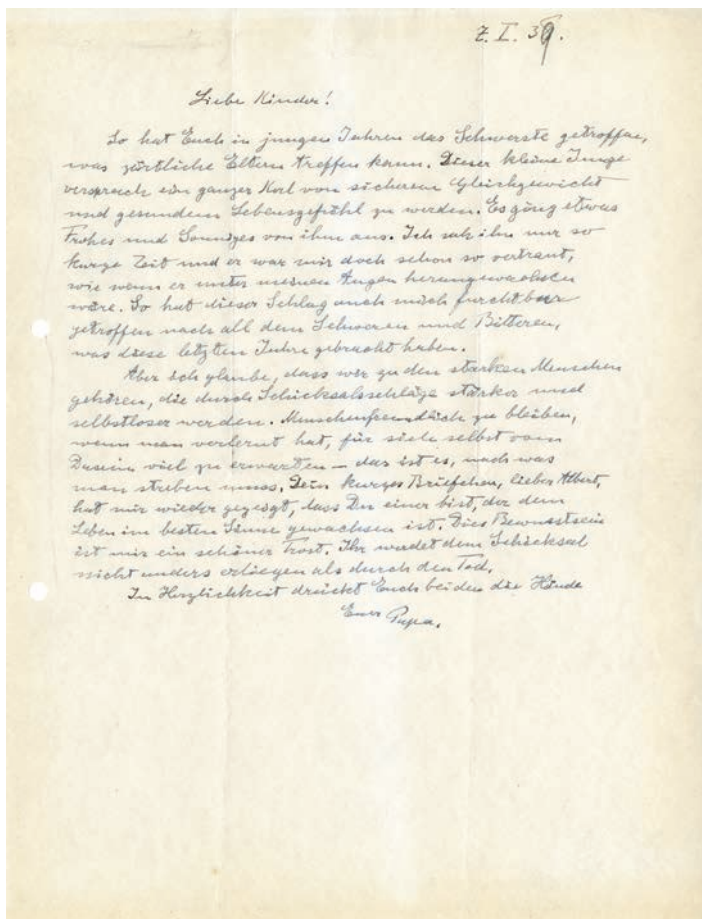 7. I. 39.
Liebe Kinder!
So hat Euch in jungen Jahren das Schwerste getroffen,
was zärtliche Eltern treffen kann. Dieser kleine Junge
versprach ein ganzer Kerl von sicherem Gleichgewicht
und gesundem Lebensgefühl zu werden. Es ging etwas
Frohes und Sonniges von ihm aus. Ich sah ihn nur so
kurze Zeit und er war mir doch schon so vertraut,
wie wenn er unter meinen Augen herangewachsen
wäre. So hat dieser Schlag auch mich furchtbar
getroffen nach all dem Schweren und Bitteren,
was diese letzten Jahre gebracht haben.
Aber ich glaube, dass wir zu den starken Menschen
gehören, die durch Schicksalsschläge stärker und
selbstloser werden. Menschenfreundlich zu bleiben,
wenn man verlernt hat, für sich selbst vom
Dasein viel zu erwarten – das ist es, nach was
man streben muss. Dein kurzes Briefchen, lieber Albert,
hat mir wieder gezeigt, dass Du einer bist, der dem
Leben im besten Sinne gewachsen ist. Dies Bewusstsein
ist mir ein schöner Trost. Ihr werdet dem Schicksal
nicht anders erliegen als durch den Tod.
In Herzlichkeit drückt Euch beiden die Hände
Euer Papa.